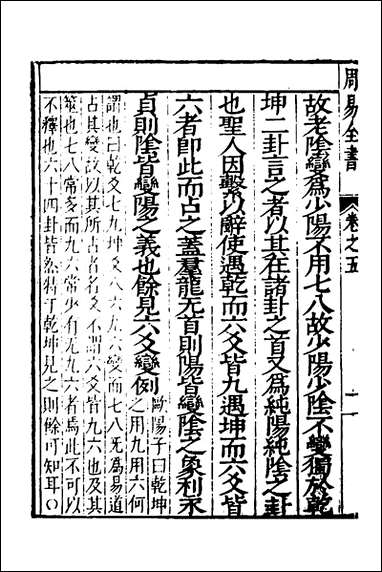 周易全書
卷之五
故老陰變爲少陽不用七八故少陽少陰不變獨於乾
坤二卦言之者以其在諸卦之首又爲純陽純陰之卦
也聖人因繫以辭使遇乾而六爻皆九遇坤而六爻皆
六者卽此而占之蓋羣龍无首則陽皆變陰之象利永
貞則陰皆變陽之義也餘見六爻變例
歐陽子曰乾坤之用九用六何
謂也曰乾爻七九坤爻八六九六變而七八无爲易道
占其變故以其所占者名爻不謂六爻皆九六也及其
筮也七八常多而九六常少有无九六者焉此不可以
不釋也六十四卦皆然特于乾坤見之則餘可知耳○